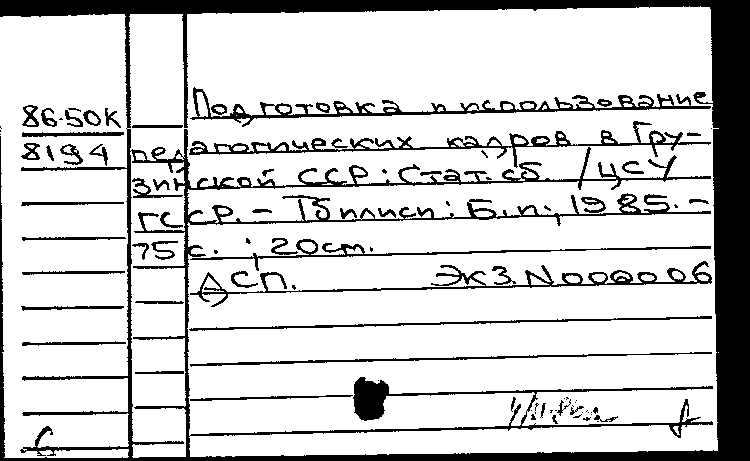 86-50К
8194
Подготовка и использование
педагогических кадров в Гру-
зинской ССР: Стат. сб. / ЦСУ
ГССР. – Тбилиси: Б. и., 1985. –
75 с. ; 20см.
ДСП. Экз. N000006